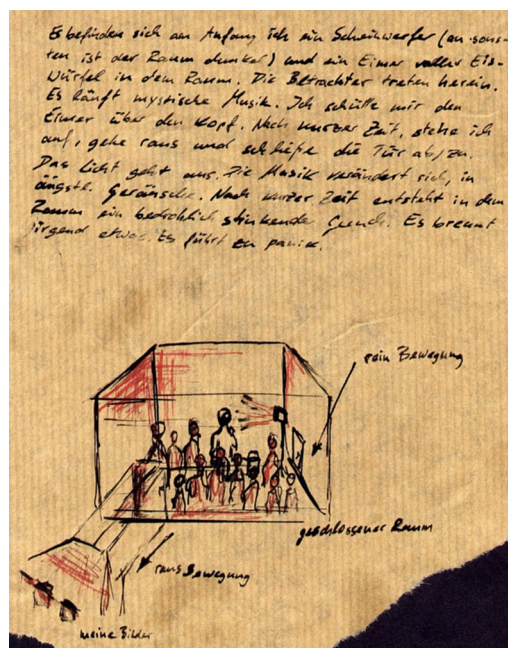 Es befinden sich am Anfang ich ein Scheinwerfer (an sons-
ten ist der Raum dunkel) und ein Eimer voller Eis-
Würfel in dem Raum. Die Betrachter treten herein.
Es läuft mystische Musik. Ich schütte mir den
Eimer über den Kopf. Nach kurzer Zeit, stehe ich
auf, gehe raus und schließe die Tür ab/zu.
Das Licht geht aus. Die Musik verändert sich, in
ängstl. Geräusche. Nach kurzer Zeit entsteht in dem
Raum ein bedrohlich stinkender Geruch. Es brennt
irgend etwas. Es führt zu panik.
rein Bewegung
geschlossener Raum
raus Bewegung
meine Bilder